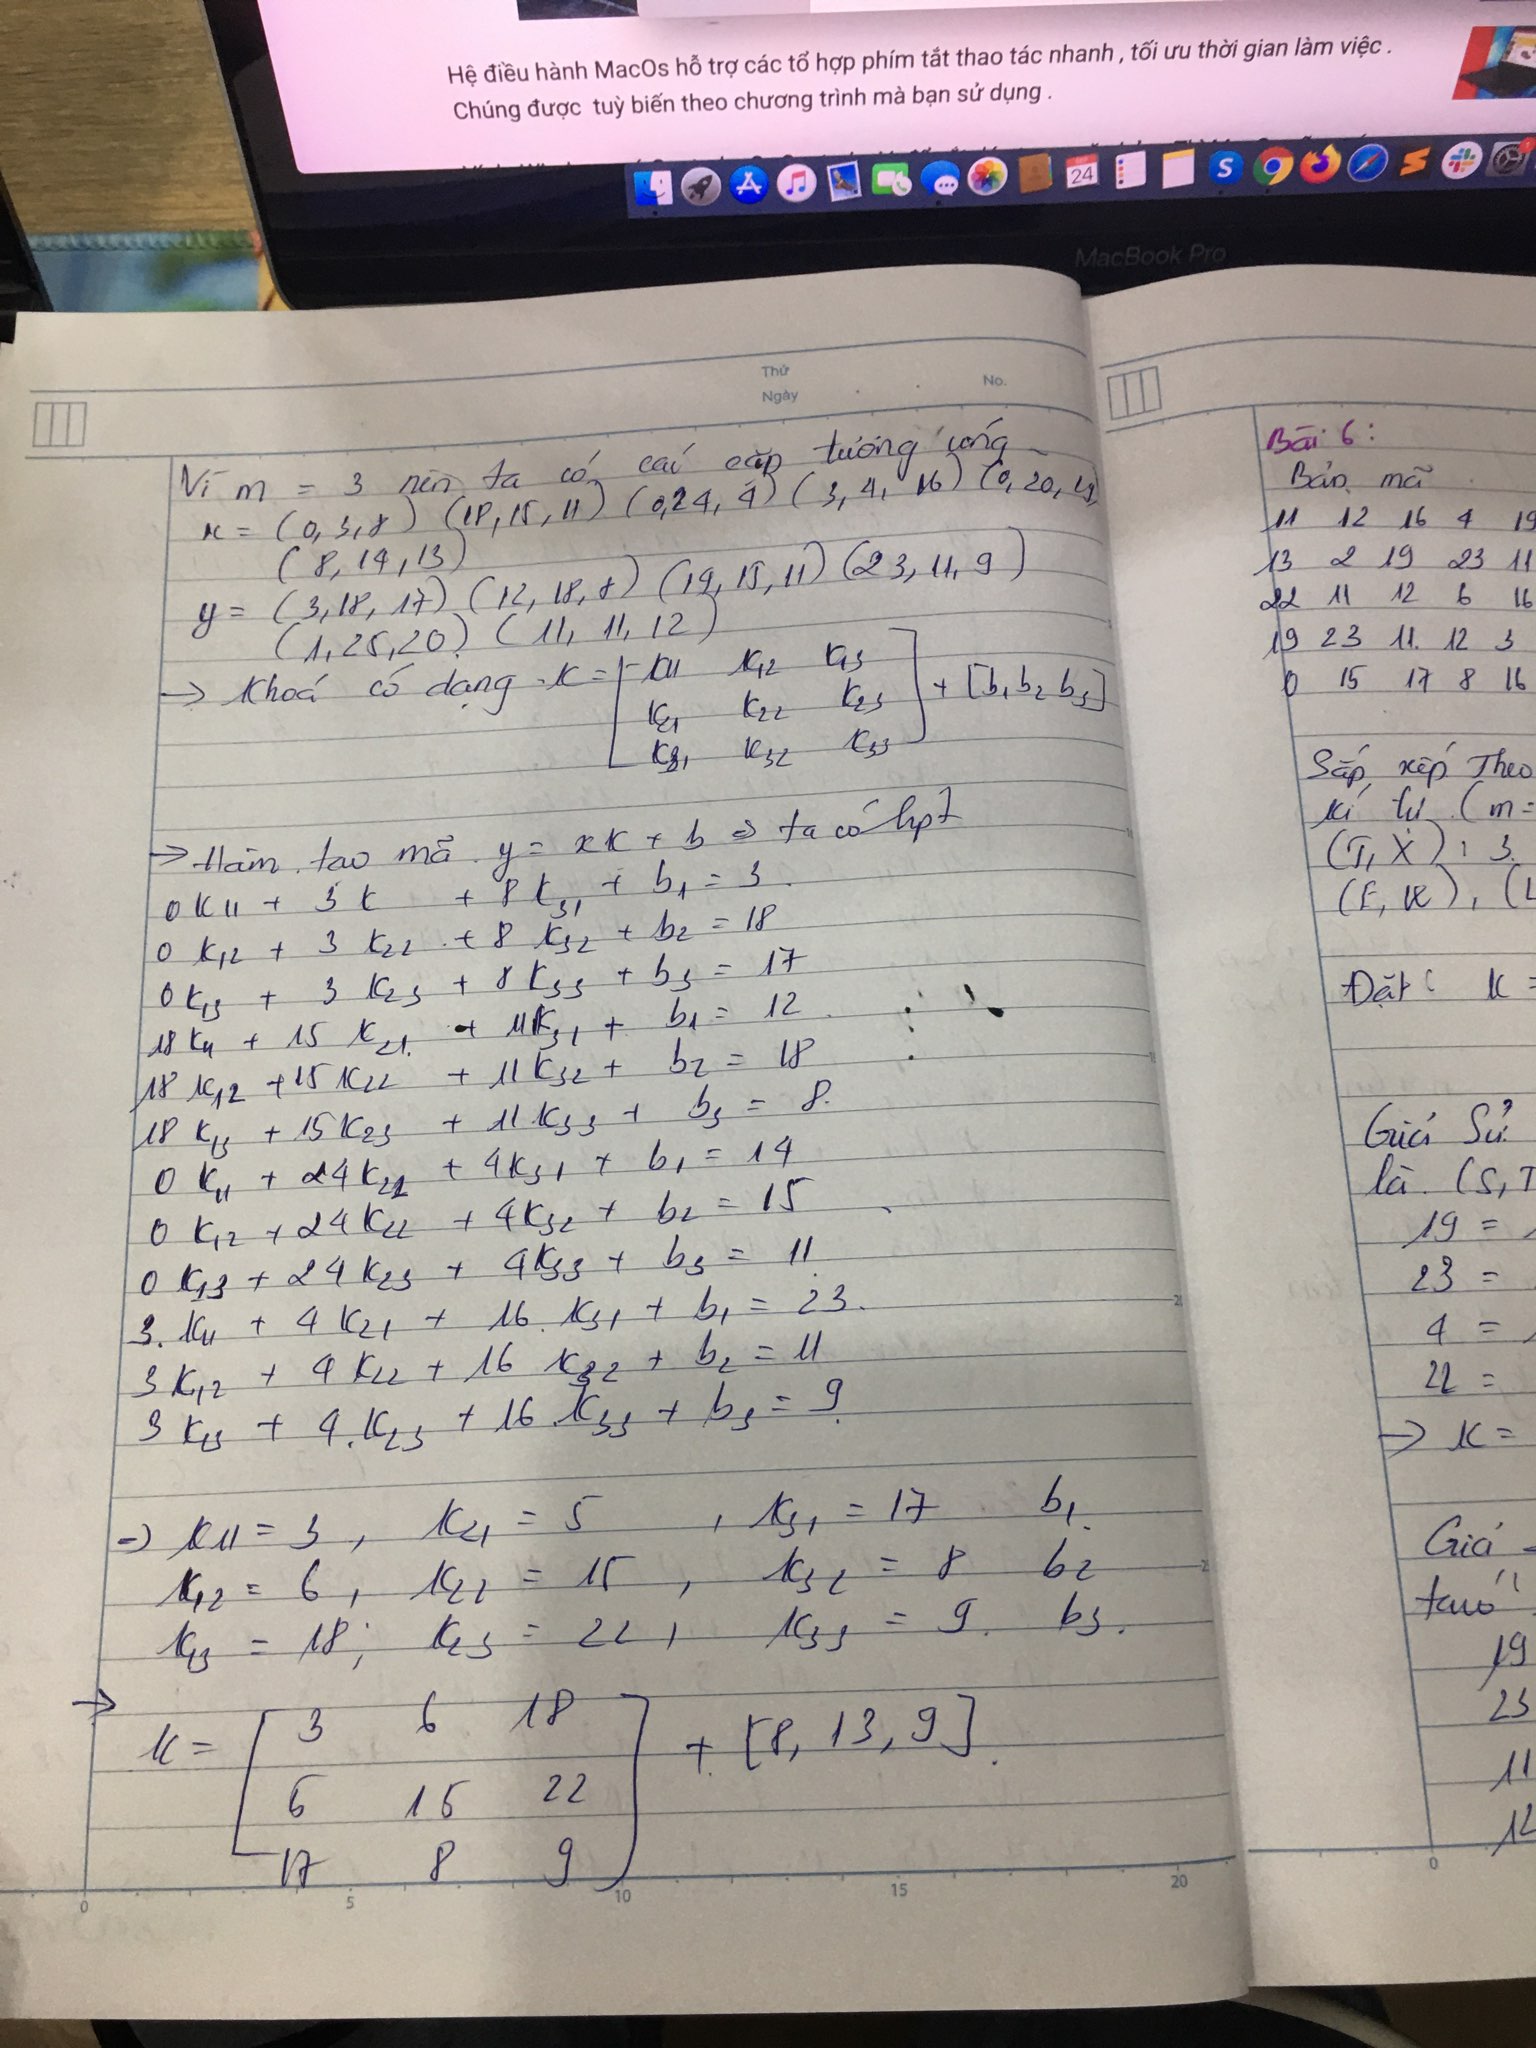 Hệ điều hành MacOs hỗ trợ các tổ hợp phím tắt thao tác nhanh , tối ưu thời gian làm việc .
Chúng được tuỳ biến theo chương trình mà bạn sử dụng .
24
MacBook Pro
Thứ
Ngày
No.
Vì m = 3 nên ta có các cặp tương ứng
x = (0,3,8) (18,15,11) (0,24,4) (3,4,16) (0,20,19)
(8,14,13)
y = (3,18,17) (12,18,8) (14,15,11) (23,11,9)
(1,25,20) (11,11,12)
→ Khoá có dạng K = [K11 K12 K13
K21 K22 K23
K31 K32 K33] + [b1 b2 b3]
→ Hàm tạo mã y = xK + b ⇒ ta có hpt
0K11 + 3K + 8K31 + b1 = 3
0K12 + 3K22 + 8K32 + b2 = 18
0K13 + 3K23 + 8K33 + b3 = 17
18K11 + 15K21 + 11K31 + b1 = 12
18K12 + 15K22 + 11K32 + b2 = 18
18K13 + 15K23 + 11K33 + b3 = 8.
0K11 + 24K21 + 4K31 + b1 = 14
0K12 + 24K22 + 4K32 + b2 = 15
0K13 + 24K23 + 4K33 + b3 = 11
3.K11 + 4K21 + 16.K31 + b1 = 23.
3K12 + 4K22 + 16K32 + b2 = 11
3K13 + 4.K23 + 16.K33 + b3 = 9
⇒ K11 = 3, K21 = 5, K31 = 17 b1
K12 = 6, K22 = 15, K32 = 8 b2
K13 = 18; K23 = 22, K33 = 9. b3.
→
K = [3 6 18
5 15 22
17 8 9] + [8, 13, 9].
0 5 10 15 20
Bài 6:
Bản mã
11 12 16 4 19
13 2 19 23 11
22 11 12 6 16
19 23 11. 12 3
0 15 17 8 16
Sắp xếp Theo
kí tự (m =
(T, X) : 3.
(E, K), (L
Đặt: K =
Giả Sử
là (S, T
19 =
23 =
4 =
22 =
→ K =
Giả
19
23
11
12
0